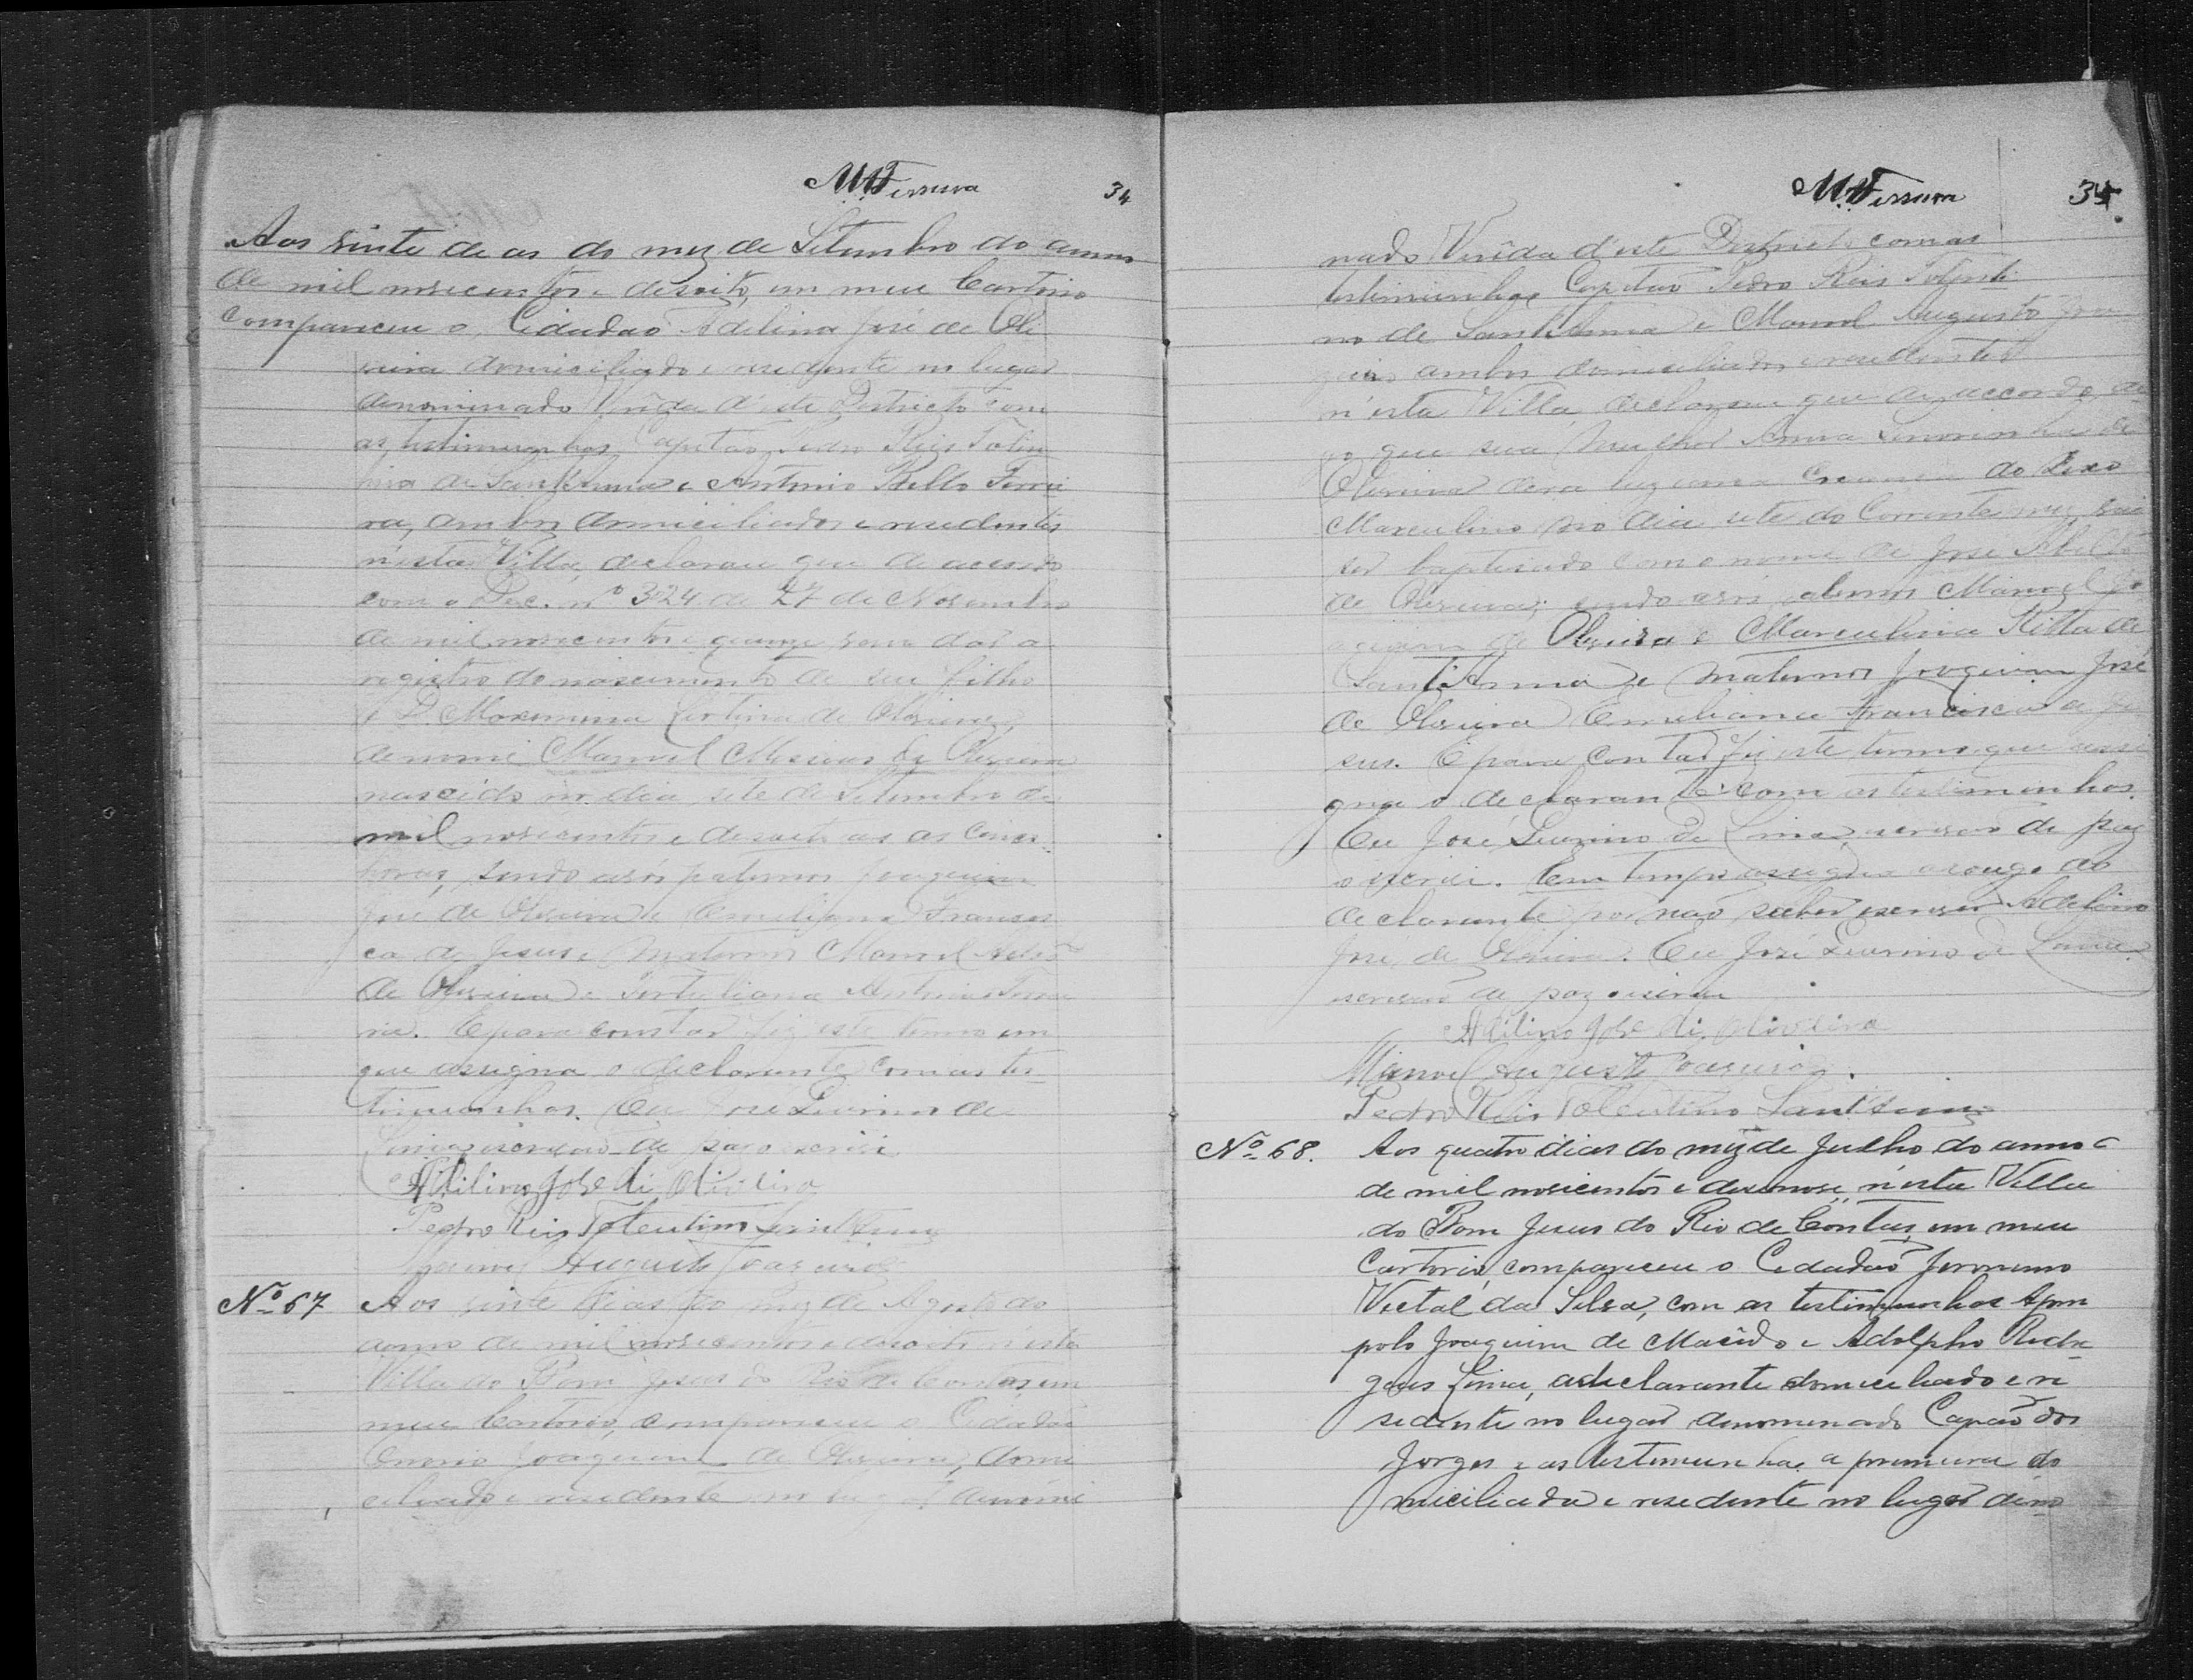 MVFerreira 34
Aos vinte de as do mez de Setembro do anno
de mil novecentos e desoito, em meu Cartorio
compareceu o Cidadão Adelino José de Oli
veira domiciliado e residente no lugar
denominado Verêda d'este Districto com
as testimunhas Capitão Pedro Reis Tolen
tino de Sant'Anna e Antonio Bello Ferrei
ra, ambos domiciliados e residentes
n'esta Villa, declarou que de accordo
com o Dec. nº 324 de 27 de Novembro
de mil novecentos e quinze vem dar a
registro do nascimento de seu filho
e D. Maximina de Oliveira,
de nome Manoel Messias de Oliveira
nascido no dia sete de Setembro de
mil novecentos e desoito as as cinco
horas, sendo avós paternos Joaquim
José de Oliveira e Emiliana Francis
ca de Jesus, e maternos Manoel
de Oliveira e Tertuliana Antonia
ra. E para constar fiz este termo em
que assigna o declarante com as tes
timunhas. Eu José Leurino de
Lima escrivão de paz o escrivi
Adilino Jose di Oliveira
Pedro Reis Tolentino Sant'Anna
Manoel Augusto
Nº 67 Aos vinte dias do mez de Agosto do
anno de mil novecentos e desoito n'esta
Villa do Bom Jesus do Rio de Contas, em
meu Cartorio, compareceu o Cidadão
Joaquim de Oliveira, domi
ciliado e residente no lugar denomi
MVFerreira 35
nado Verêda d'este Districto com as
testimunhas Capitão Pedro Reis Tolenti
no de Sant'Anna e Manoel Augusto
ambos domiciliados e residentes
n'esta Villa, declarou que de accordo
que sua mulher Anna de
Oliveira dera luz uma creança do sexo
Masculino no dia sete do Corrente mez, vai
ser baptisado com o nome de José
de Oliveira; sendo avós paternos Manoel Jo
aquim de Oliveira e Marculina Ritta de
Sant'Anna e maternos Joaquim José
de Oliveira Emiliana Francisca de Je
sus. E para contar fiz este termo que assi
gna o declarante com as testimunhas.
Eu José Leurino de Lima, escrivão de paz
o escrivi. Em tempo assigna a rougo do
declarante por não saber escrever Adelino
José de Oliveira. Eu José Leurino de Lima
escrivão de paz o escrivi
Adilino Jose di Oliveira
Manoel Augusto
Pedro Reis Tolentino Sant'Anna
Nº 68. Aos quatro dias do mez de Julho do anno
de mil novecentos e desenove, n'esta Villa
do Bom Jesus do Rio de Contas, em meu
Cartorio, compareceu o Cidadão Jeronimo
Victal da Silva, com as testimunhas
polo Joaquim de Macêdo e Adolpho Rodri
gues Lima, o declarante domiciliado e re
sidente no lugar denominado Capão dos
Jorges e as testemunhas a primeira do
miciliada e residente no lugar deno